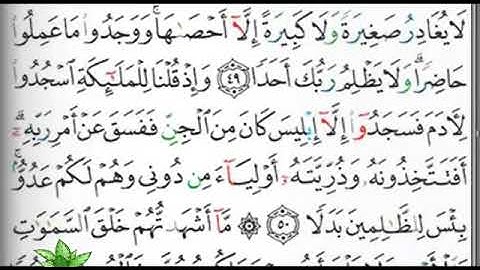 لَا يُغَادِرُ صَغِيرَةً وَلَا كَبِيرَةً إِلَّآ أَحْصَىٰهَا ۚ وَوَجَدُوا۟ مَا عَمِلُوا۟
حَاضِرًا ۗ وَلَا يَظْلِمُ رَبُّكَ أَحَدًا ٤٩ وَإِذْ قُلْنَا لِلْمَلَٰٓئِكَةِ ٱسْجُدُوا۟
لِـَٔادَمَ فَسَجَدُوٓا۟ إِلَّآ إِبْلِيسَ كَانَ مِنَ ٱلْجِنِّ فَفَسَقَ عَنْ أَمْرِ رَبِّهِۦٓ ۗ
أَفَتَتَّخِذُونَهُۥ وَذُرِّيَّتَهُۥٓ أَوْلِيَآءَ مِن دُونِى وَهُمْ لَكُمْ عَدُوٌّۢ ۚ
بِئْسَ لِلظَّٰلِمِينَ بَدَلًا ٥٠ ۞ مَّآ أَشْهَدتُّهُمْ خَلْقَ ٱلسَّمَٰوَٰتِ